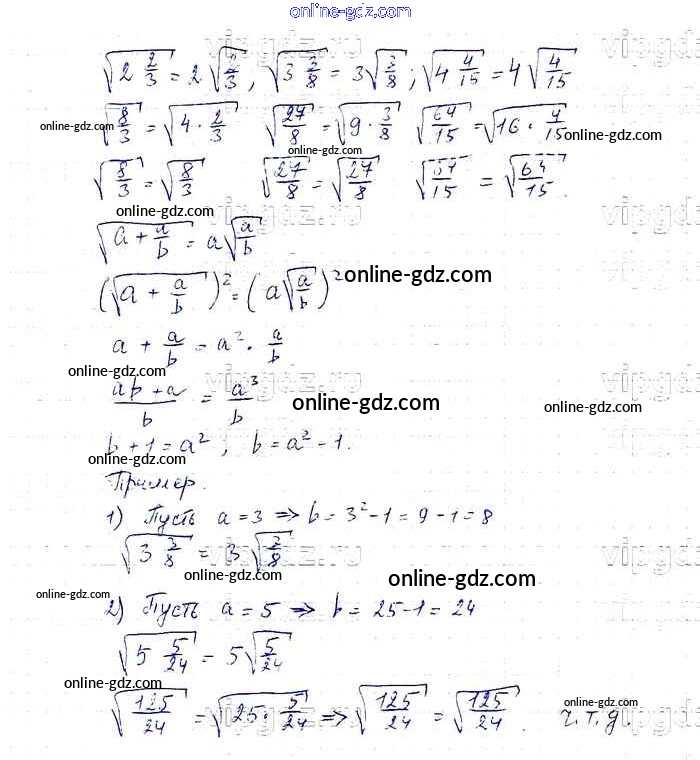 online-gdz.com
√(2 2/3) = 2√(2/3), √(3 3/8) = 3√(3/8); √(4 4/15) = 4√(4/15)
√(8/3) = √(4 · 2/3) √(27/8) = √(9 · 3/8) √(64/15) = √(16 · 4/15)
online-gdz.com online-gdz.com
online-gdz.com
√(8/3) = √(8/3) √(27/8) = √(27/8) √(64/15) = √(64/15).
online-gdz.com
√(a + a/b) = a√(a/b)
online-gdz.com
(√(a + a/b))² = (a√(a/b))²
a + a/b = a² · a/b
online-gdz.com
(ab + a)/b = a³/b
online-gdz.com online-gdz.com
b + 1 = a²; b = a² - 1.
online-gdz.com
Пример.
1) Пусть a = 3 ⇒ b = 3² - 1 = 9 - 1 = 8
√(3 3/8) = 3√(3/8)
online-gdz.com online-gdz.com
online-gdz.com
2) Пусть a = 5 ⇒ b = 25 - 1 = 24
√(5 5/24) = 5√(5/24)
online-gdz.com
√(125/24) = √(25 · 5/24) ⇒ √(125/24) = √(125/24). ч.т.д.
online-gdz.com
online-gdz.com